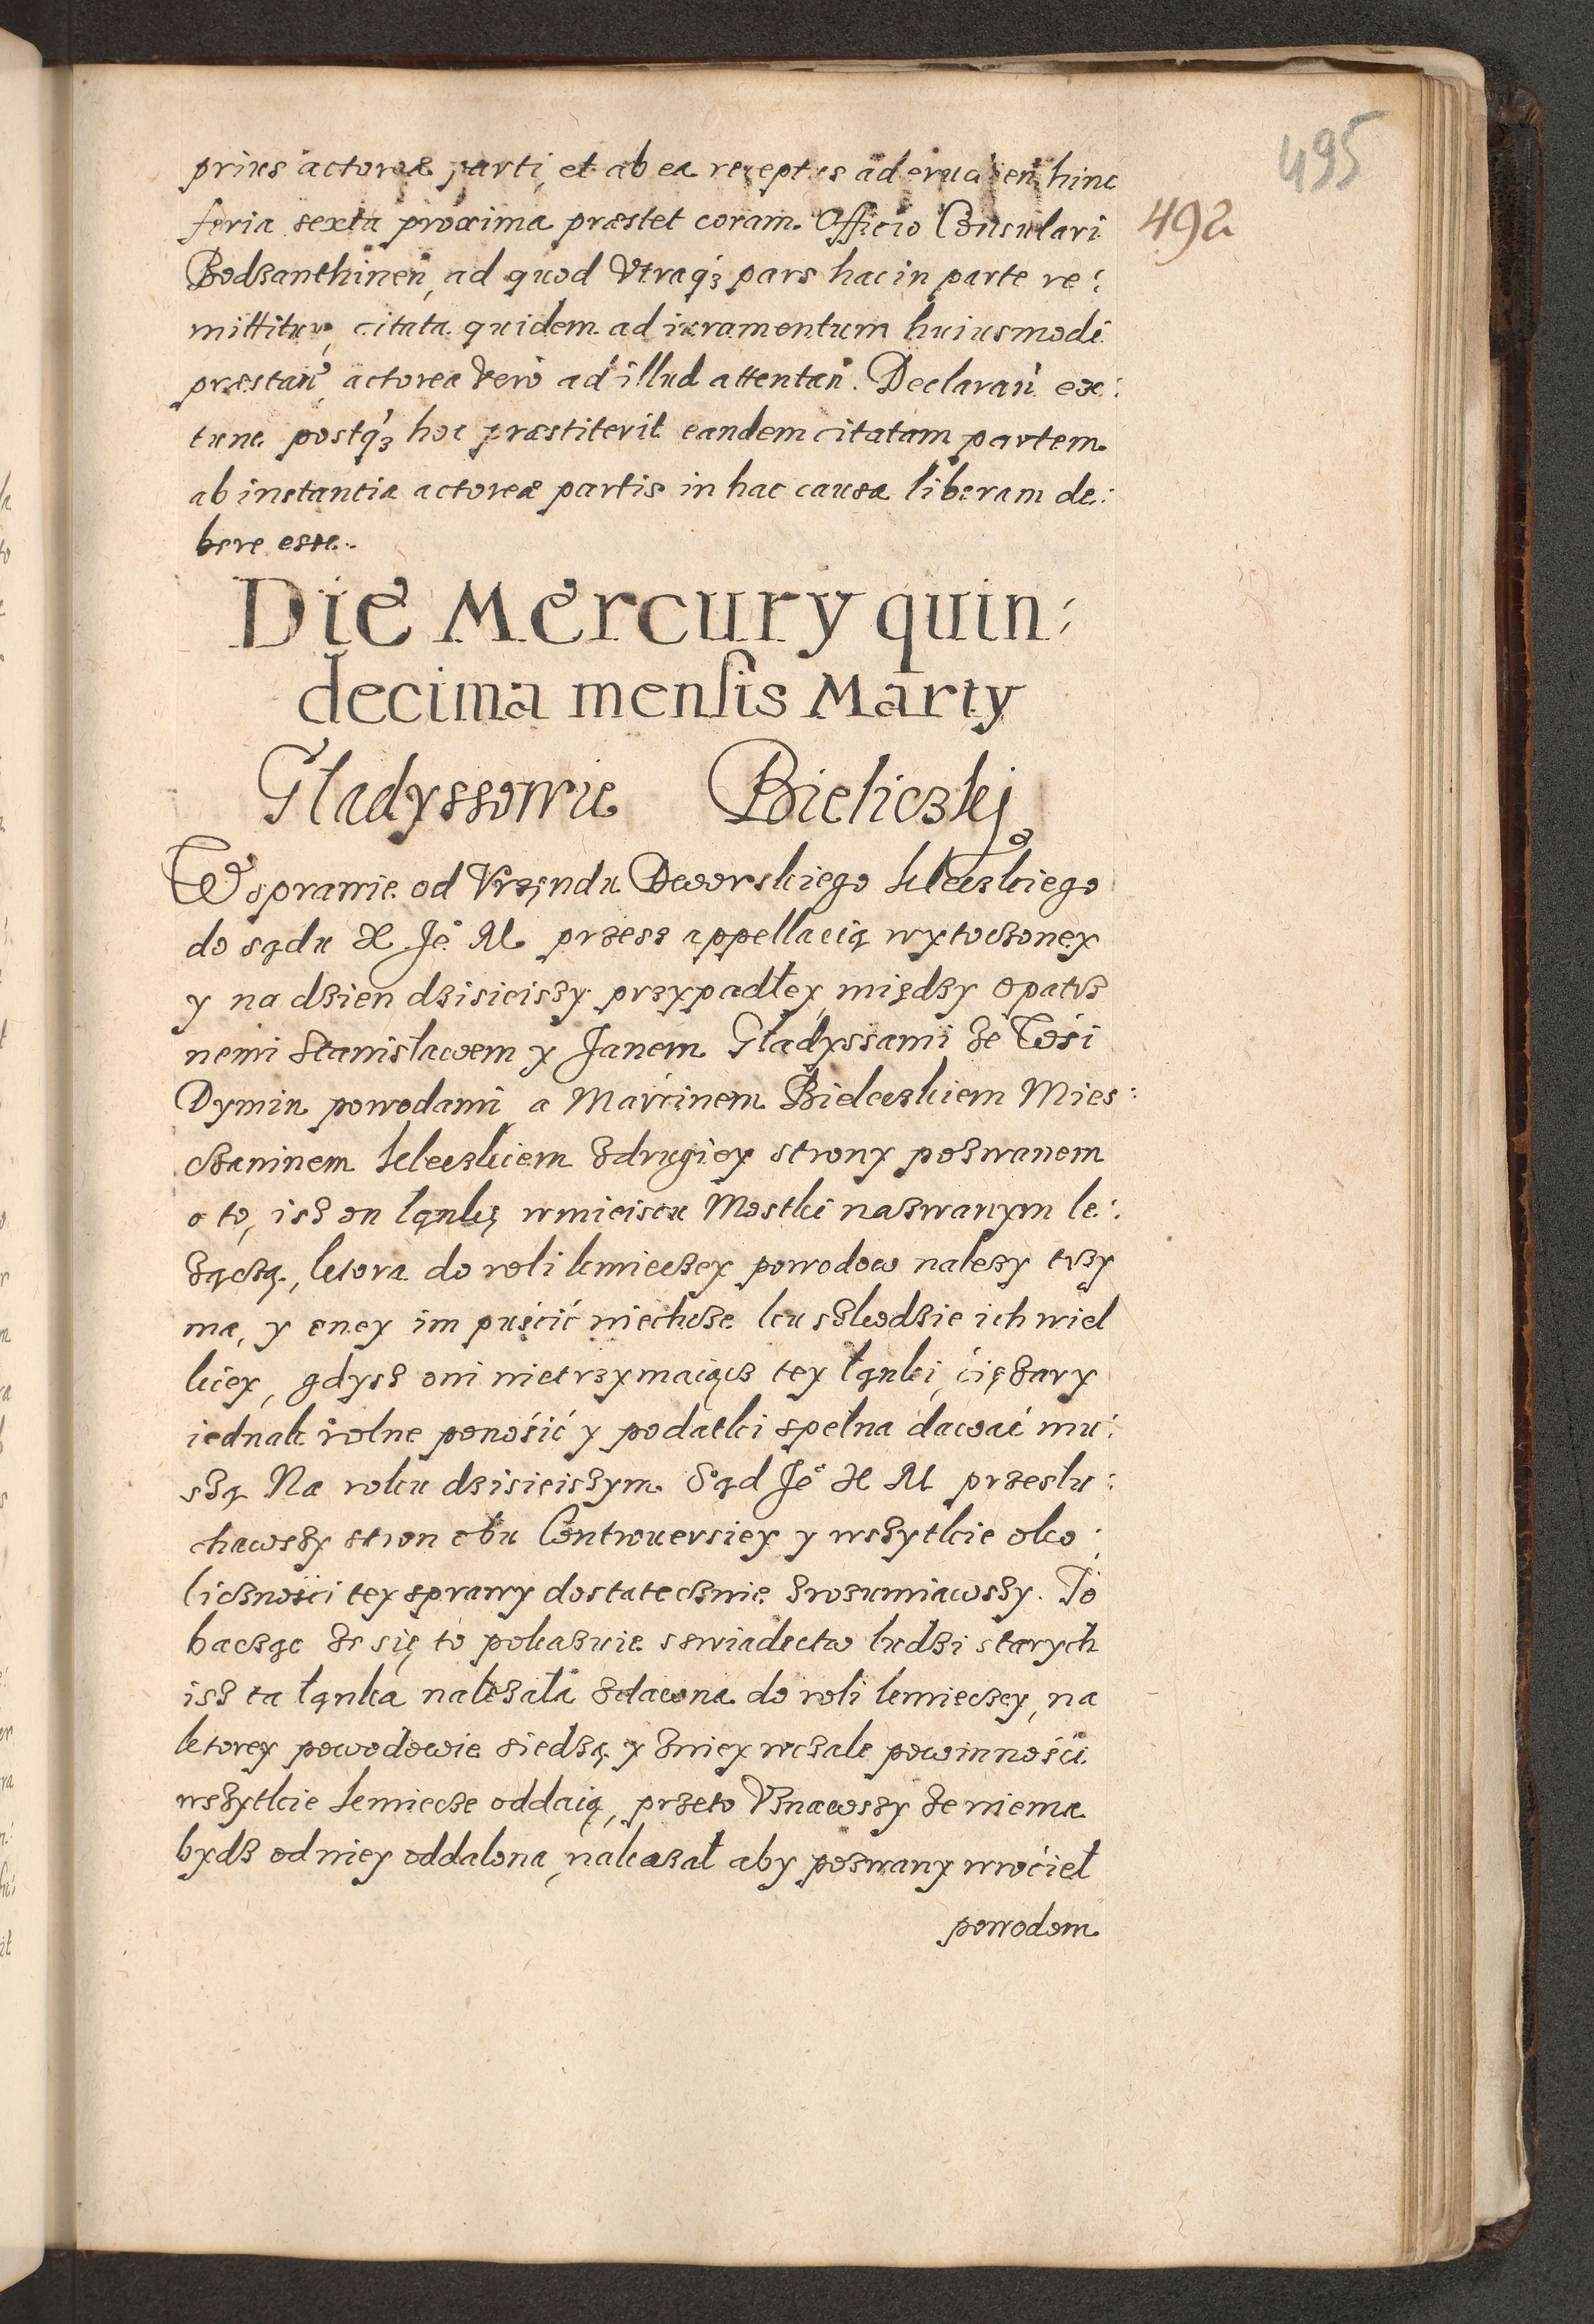 495
492
prius actoreæ parti, et ab ea receptus ad eruadeñ hinc
feria sexta proxima præstet coram Officio Consulari
Bodzanthineñ, ad quod Vtraqȝ pars hac in parte re:
mittitur, citata quidem ad iuramentum huiusmodi
præstañ, actorea vero ad illud attentañ. Declarañ ex:
tunc postqȝ hoc præstiterit eandem citatam partem
ab instantia actoreæ partis in hac causa liberam de:
bere esse.
Die Mercury quin:
decima mensis Marty
Gładyssowie Bieliczkj
W sprawie od Vrzęndu Dworskiego kleczkiego
do sądu X Je° M przess appellacią wytoczoney
y na dzien dzisieiszy przypadłey, między opatrz
nemi Stanisławem y Janem Gładyssami ze Wsi
Dymin powodami, a Marćinem Bieleczkiem Mies:
czaninem kleczkiem zdrugiey strony pozwanem
o to, isz on łąnkę wmieiscu Mostki nazwanym le:
zączą, ktora do roli kmieczey powodow nalezy trzy
ma, y oney im puśćić niechcze ku szkodzie ich wiel
kiey, gdysz oni nietrzymaiącz tey łąnki, ćięzary
iednak rolne ponośić y podatki spełna dawać mu:
szą Na roku dzisieiszym Sąd Je° X M przesłu:
chawszy stron obu Controuersiey y wszytkie oko:
licznośći tey sprawy dostatecznie zrozumiawszy. To
bacząc ze się to pokazuie sswiadectw ludzi starych
isz ta łąnka nalezała zdawna do roli kmieczey, na
ktorey powodowie siedzą y zniey wczale powinnośći
wszytkie kmiecze oddaią, przeto Vznawszy ze niema
bydz odniey oddalona, nakazał aby pozwany wroćieł
powodom